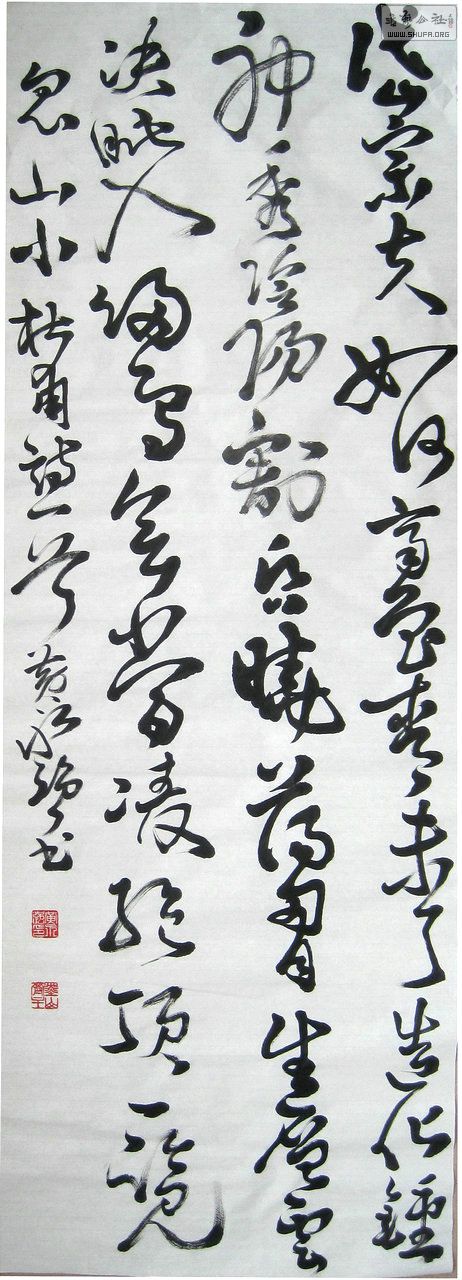 岱宗夫如何齊魯青未了造化鍾
神秀陰陽割昏曉蕩胸生層雲
决眦入歸鳥會當凌絕頂一覽
眾山小 杜甫詩一首 書
公社
WWW.SHUFA.ORG